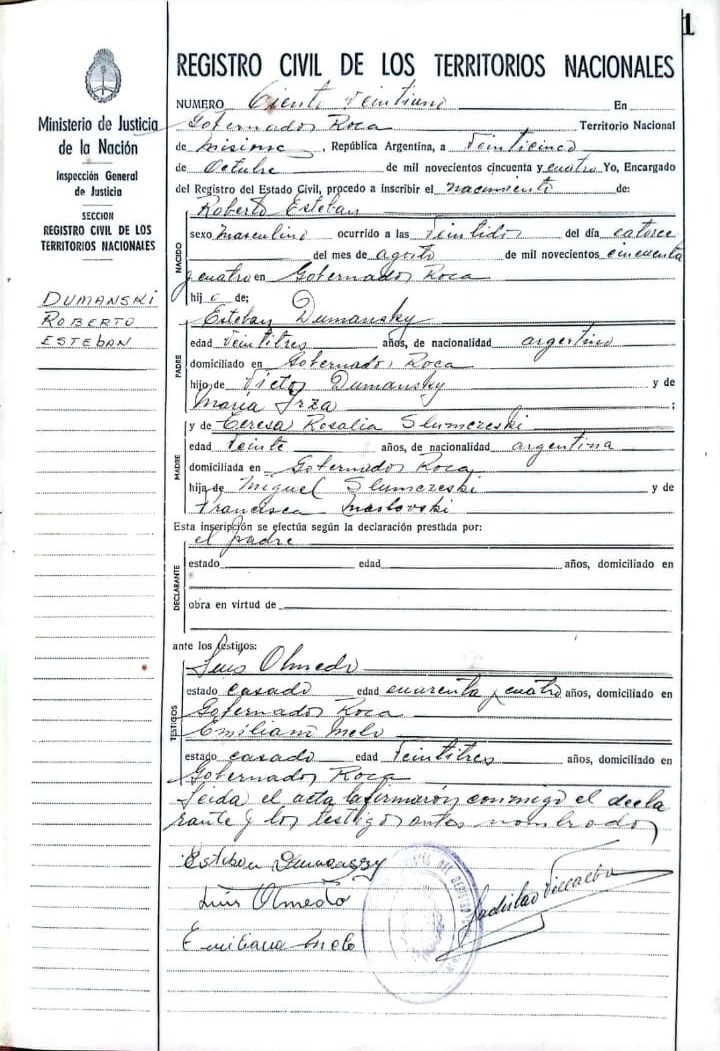 1
REGISTRO CIVIL DE LOS TERRITORIOS NACIONALES
Ministerio de Justicia
de la Nación
Inspección General
de Justicia
SECCION
REGISTRO CIVIL DE LOS
TERRITORIOS NACIONALES
DUMANSKI
ROBERTO
ESTEBAN
NUMERO Ciento veintiuno En
Gobernador Roca Territorio Nacional
de Misiones, República Argentina, a Veinticinco
de Octubre de mil novecientos cincuenta y cuatro Yo, Encargado
del Registro del Estado Civil, procedo a inscribir el nacimiento de:
NACIDO
Roberto Esteban
sexo masculino ocurrido a las veintidos del día catorce
del mes de agosto de mil novecientos cincuenta
y cuatro en Gobernador Roca
hijo de;
PADRE
Esteban Dumansky
edad veintitres años, de nacionalidad argentino
domiciliado en Gobernador Roca
hijo de Victor Dumansky y de
María Irza ;
MADRE
y de Teresa Rosalia Slumczeski
edad veinte años, de nacionalidad argentina
domiciliada en Gobernador Roca
hija de Miguel Slumczeski y de
Francisca Maslovski
Esta inscripción se efectúa según la declaración prestada por:
DECLARANTE
el padre
estado edad años, domiciliado en
obra en virtud de
ante los testigos:
TESTIGOS
Luis Olmedo
estado casado edad cuarenta y cuatro años, domiciliado en
Gobernador Roca
Emiliano Melo
estado casado edad veintitres años, domiciliado en
Gobernador Roca
Leida el acta la firmaron conmigo el decla
rante y los testigos antes nombrados
Esteban Dumansky
Luis Olmedo
Emiliano Melo
Ladislao Villalba